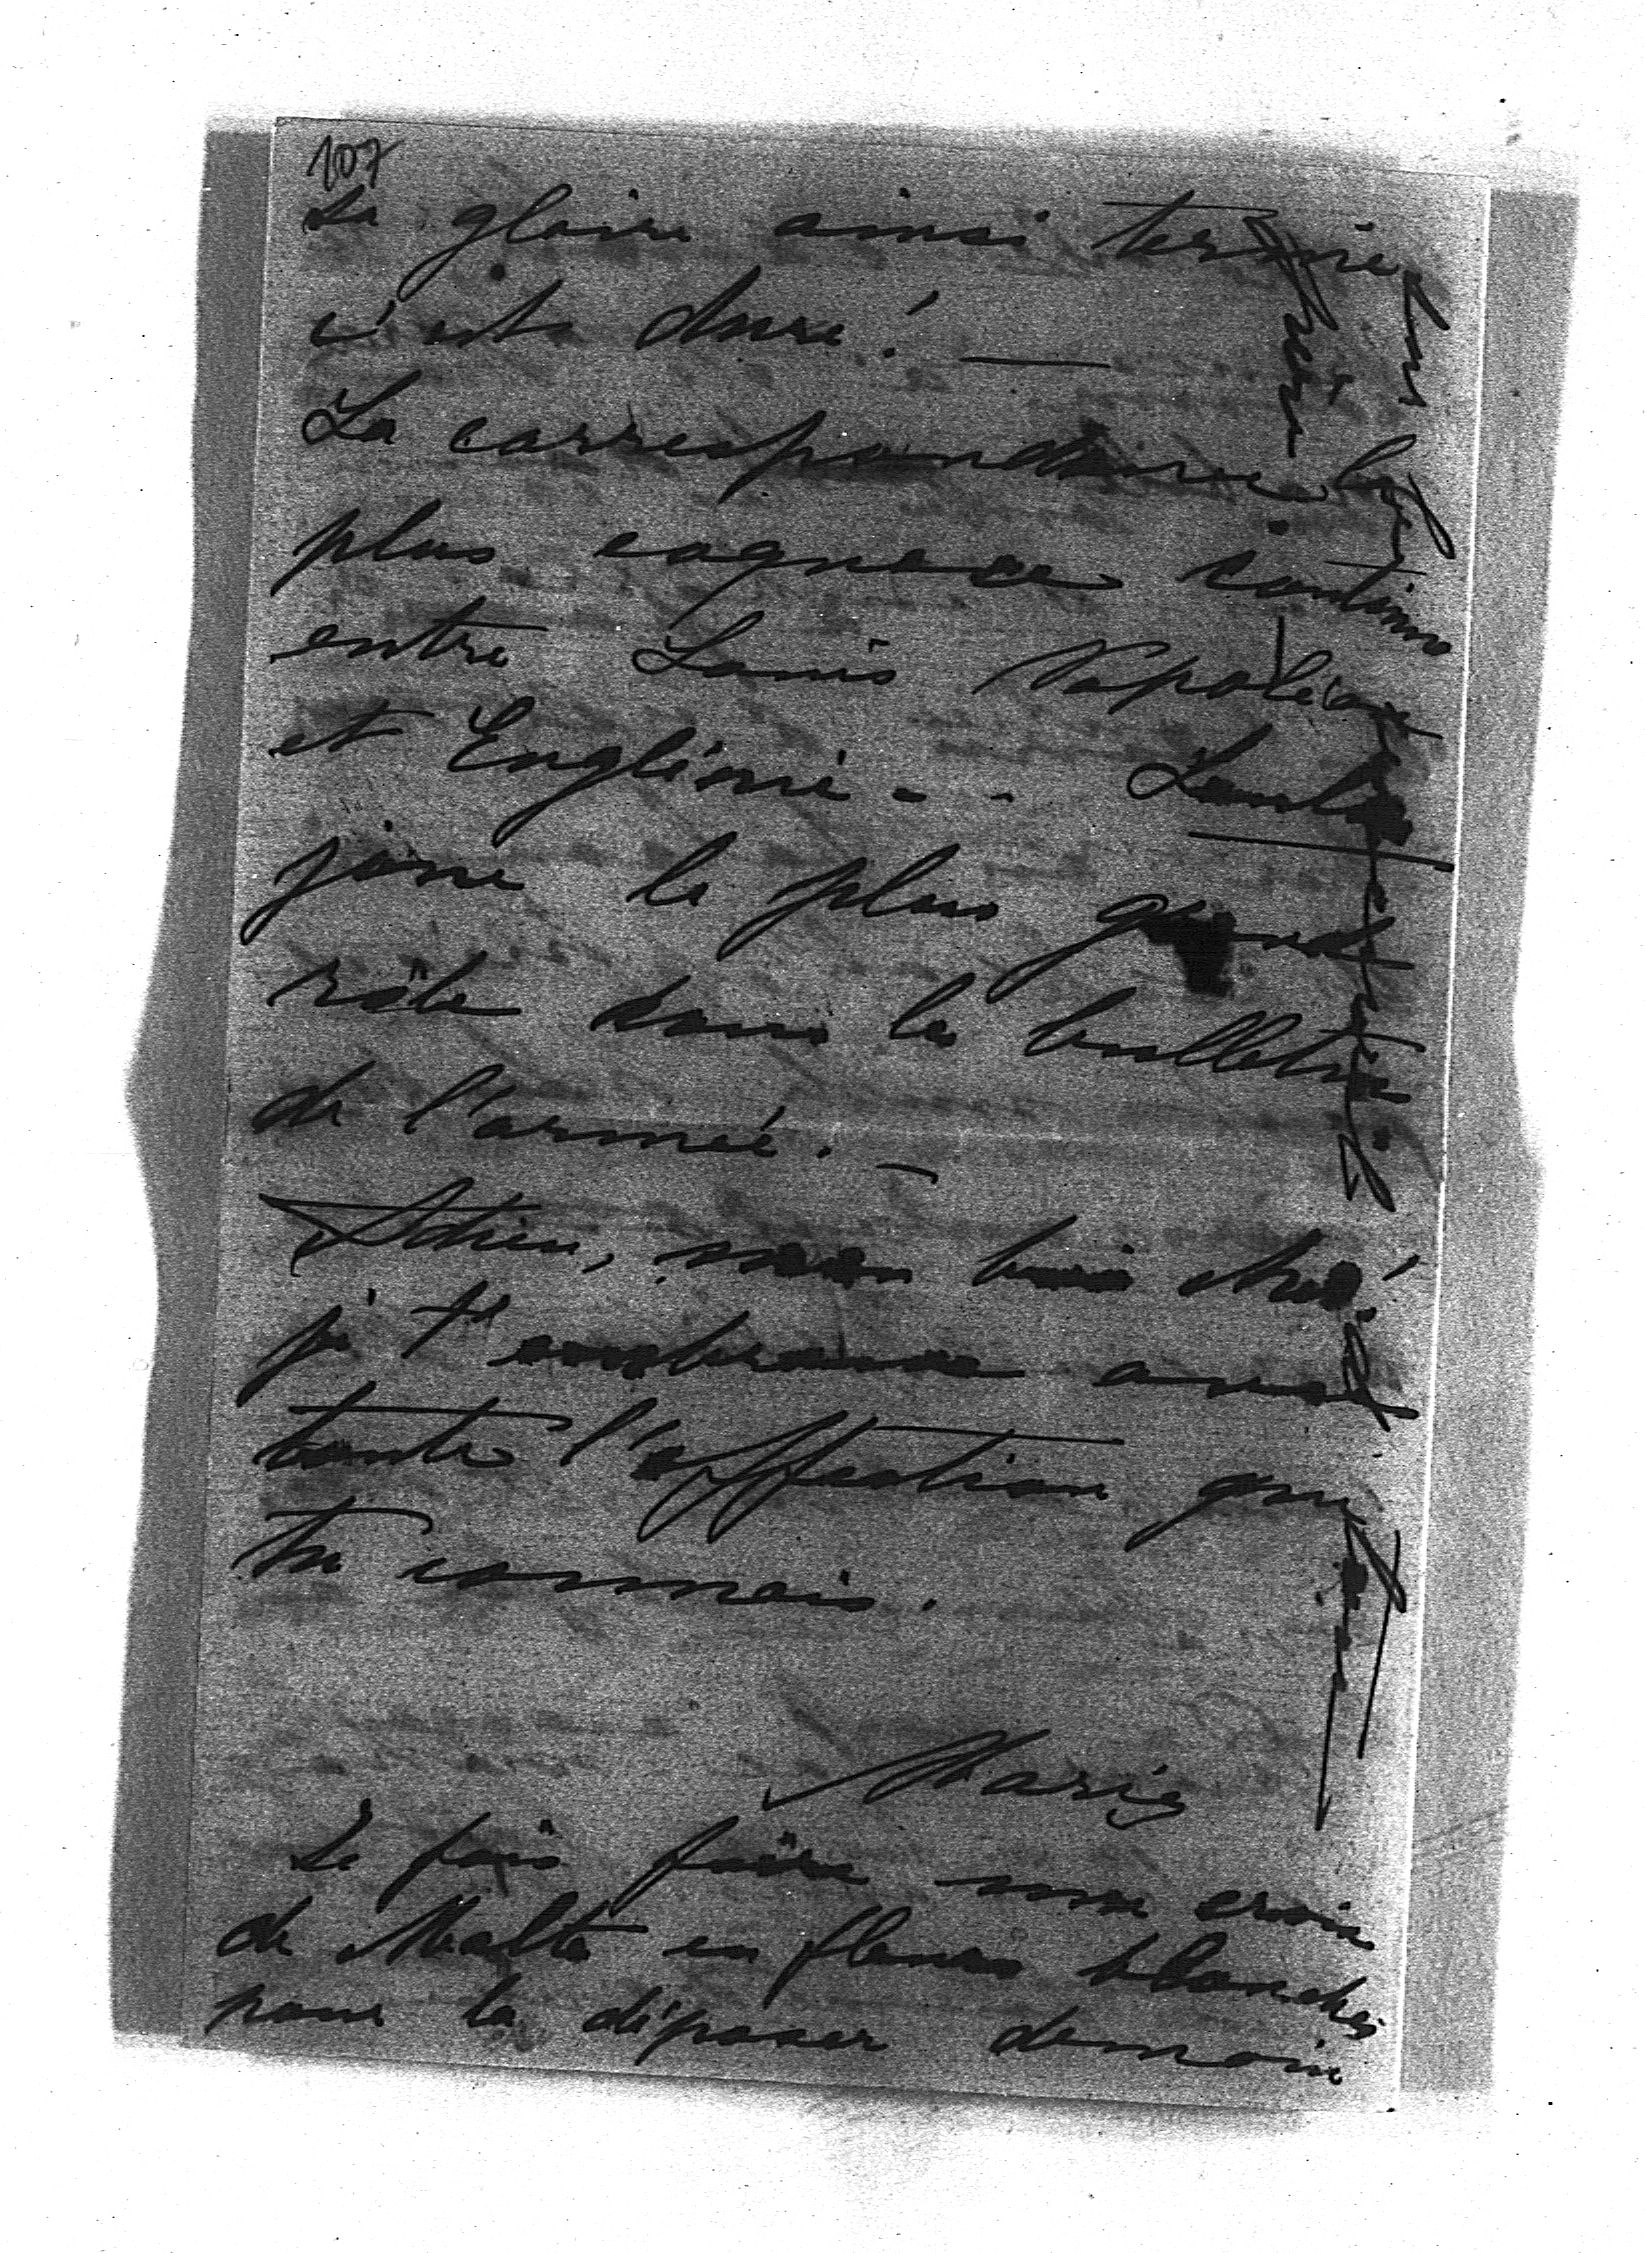 107
sa gloire ainsi ternie
c'est dure! —
La correspondance la
plus cognace continue
entre Louis Napoléon
et Englénie - - Loulou
joue le plus grand
rôle dans les bulletins
de l'armée. —
Adieu, mon bien cher!
je t'embrasse avec
toute l'affection que
tu connais.
Marie
Je fais faire une croix
de Malte en fleurs blanches
pour la déposer demain
sur